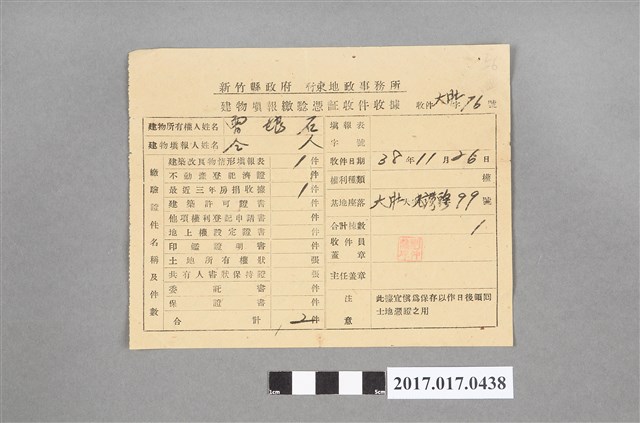 新竹縣政府 竹東地政事務所
建物填報繳驗憑証收件收據
收件 大肚 字 76 號
建物所有權人姓名 曾 石
建物填報人姓名 仝 人
繳驗證件名稱及件數
建築改良物情形填報表 1 件
不動產登記濟證 件
最近三年房捐收據 1 件
建築許可證書 件
他項權利登記申請書 件
地上權設定證書 件
印鑑證明書 件
土地所有權狀 張
共有人書狀保持證 張
委託書 件
保證書 件
合計 2 件
填報表
字號
收件日期 38 年 11 月 26 日
權利種類 權
基地座落 大肚 99 號
合計棟數 1
收件員
蓋章
主任蓋章
注意
此據宜慎爲保存以作日後領回
土地憑證之用
1cm
5cm
2017.017.0438